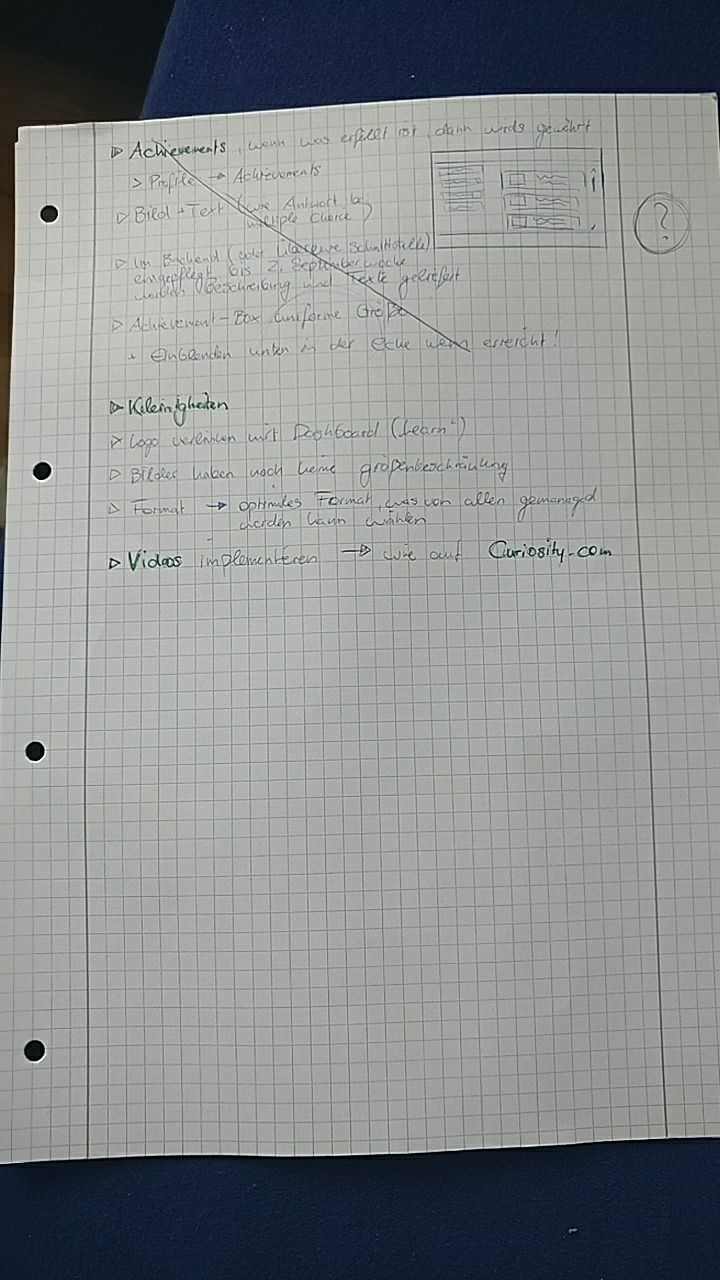 ▷ Achievements, wenn was erfüllt ist, dann wirds gewährt
> Profile → Achievements
▷ Bild + Text (wie Antwort bei
multiple choice)
▷ Im Backend (oder Schnittstelle)
eingepflegt, bis 2. Septemberwoche
Beschreibung und Texte geliefert
▷ Achievement-Box uniforme Größe
+ Einblenden unten in der Ecke wenn erreicht!
?
▷ Kleinigkeiten
▷ Logo verlinken mit Dashboard ("Learn")
▷ Bilder haben noch keine größenbeschränkung
▷ Format → optimales Format, was von allen gemanaged
werden kann wählen
▷ Videos implementieren → wie auf Curiosity.com